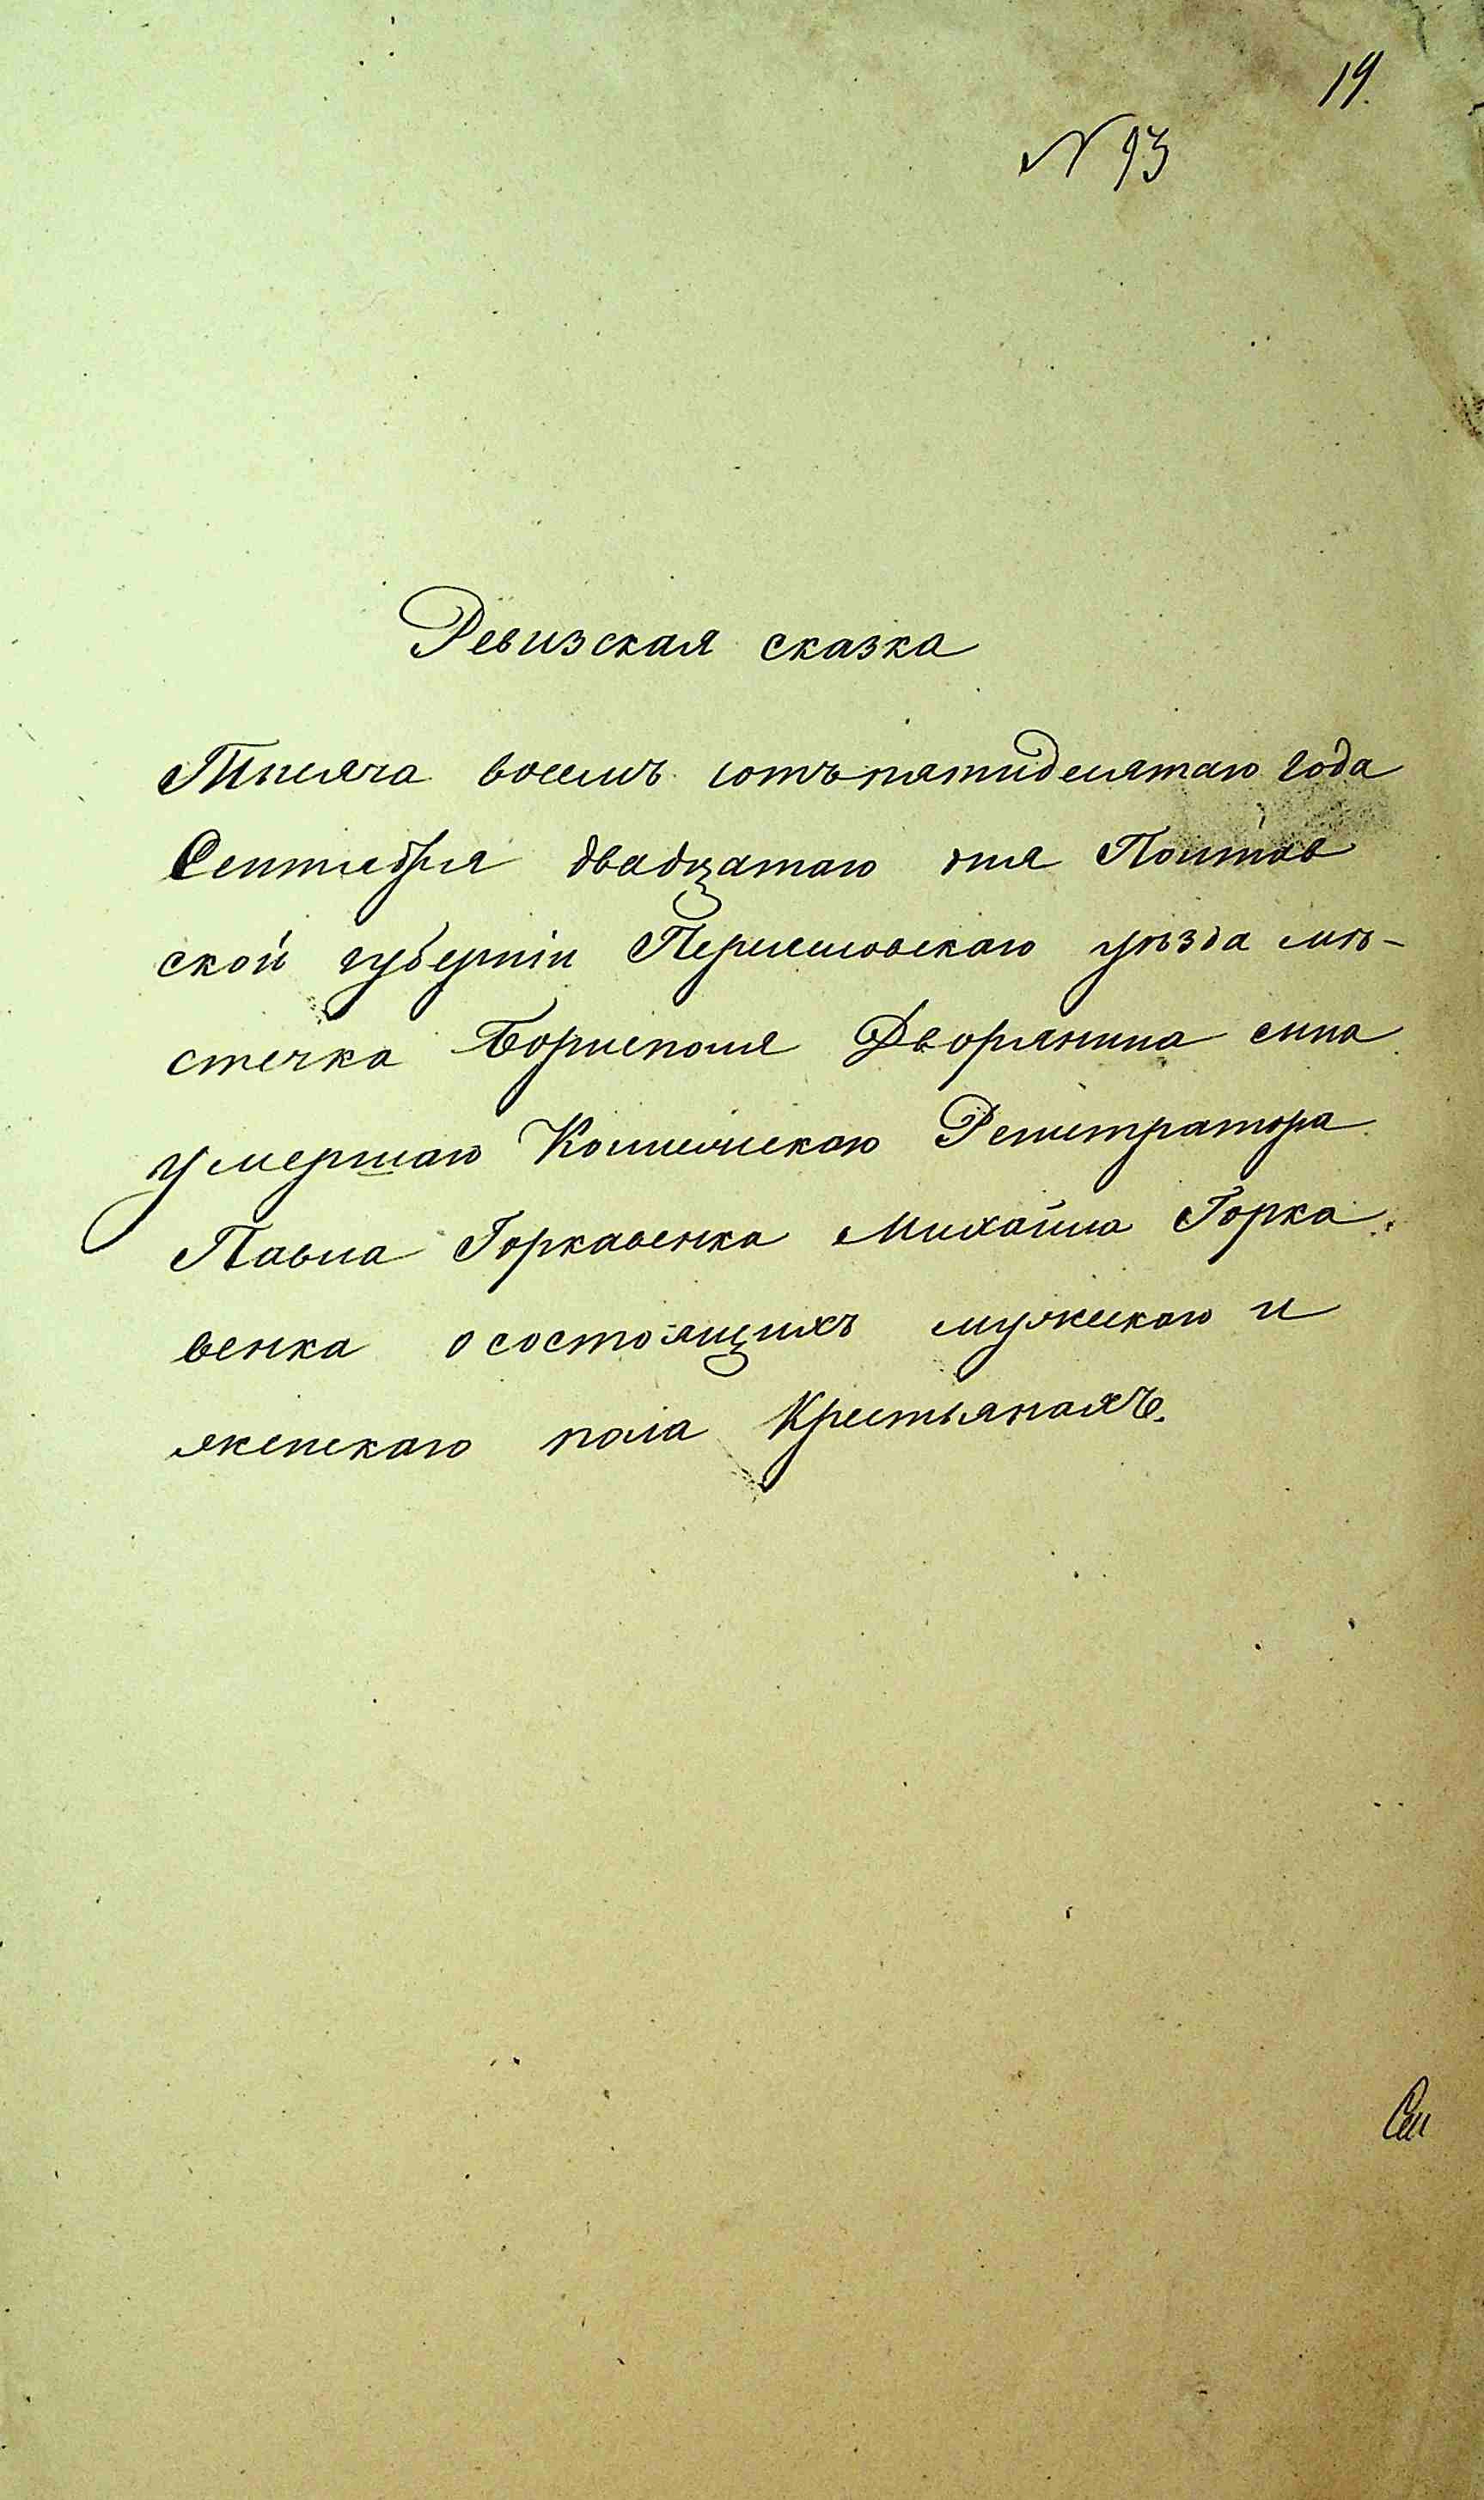 19.
N 93
Ревизская сказка
Тысяча восемь сотъ пятидесятаго года
Сентября двадцатаго дня Полтав
ской губерніи Переяславскаго уѣзда мѣ-
стечка Борисполя Дворянина сына
умершаго Коллежскаго Регистратора
Павла Горкавенка Михайла Горка
венка о состоящихъ мужескаго и
женскаго пола Крестьянахъ.